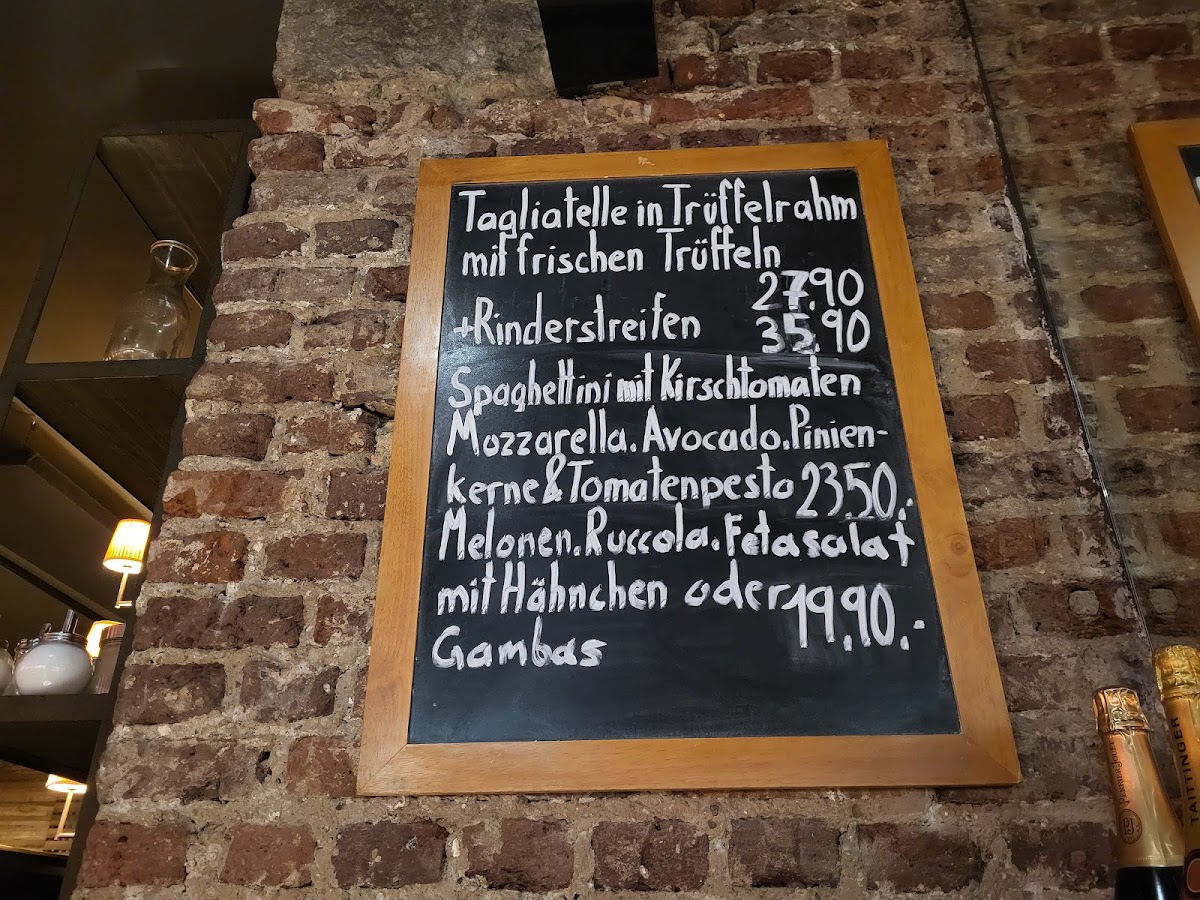 Tagliatelle in Trüffelrahm
mit frischen Trüffeln
27,90
+Rinderstreifen 35,90
Spaghettini mit Kirschtomaten
Mozzarella. Avocado. Pinien-
kerne & Tomatenpesto 23.50.-
Melonen. Ruccola. Fetasalat
mit Hähnchen oder 19.90.-
Gambas
TAITTINGER